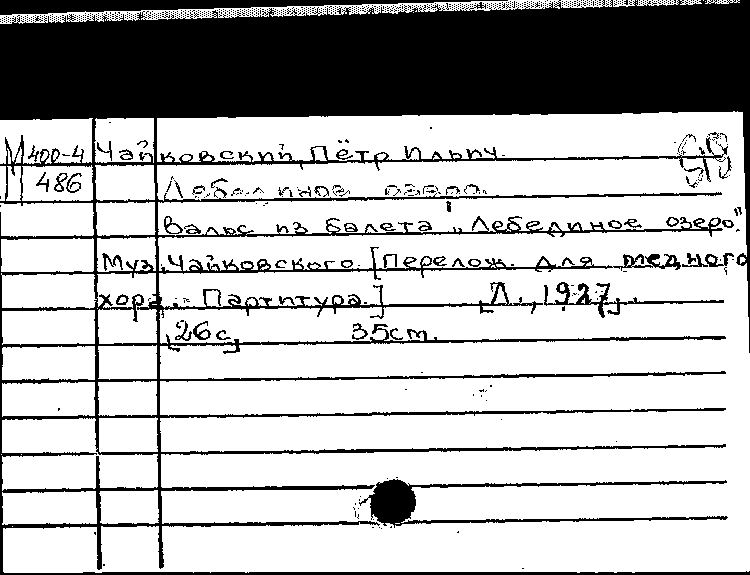 М 400-4 Чайковский, Пётр Ильич.
486 Лебединое озеро.
Вальс из балета "Лебединое озеро."
Муз. Чайковского. [Перелож. для медного
хора. - Партитура.] [Л., 1927].
[26с] 35см.